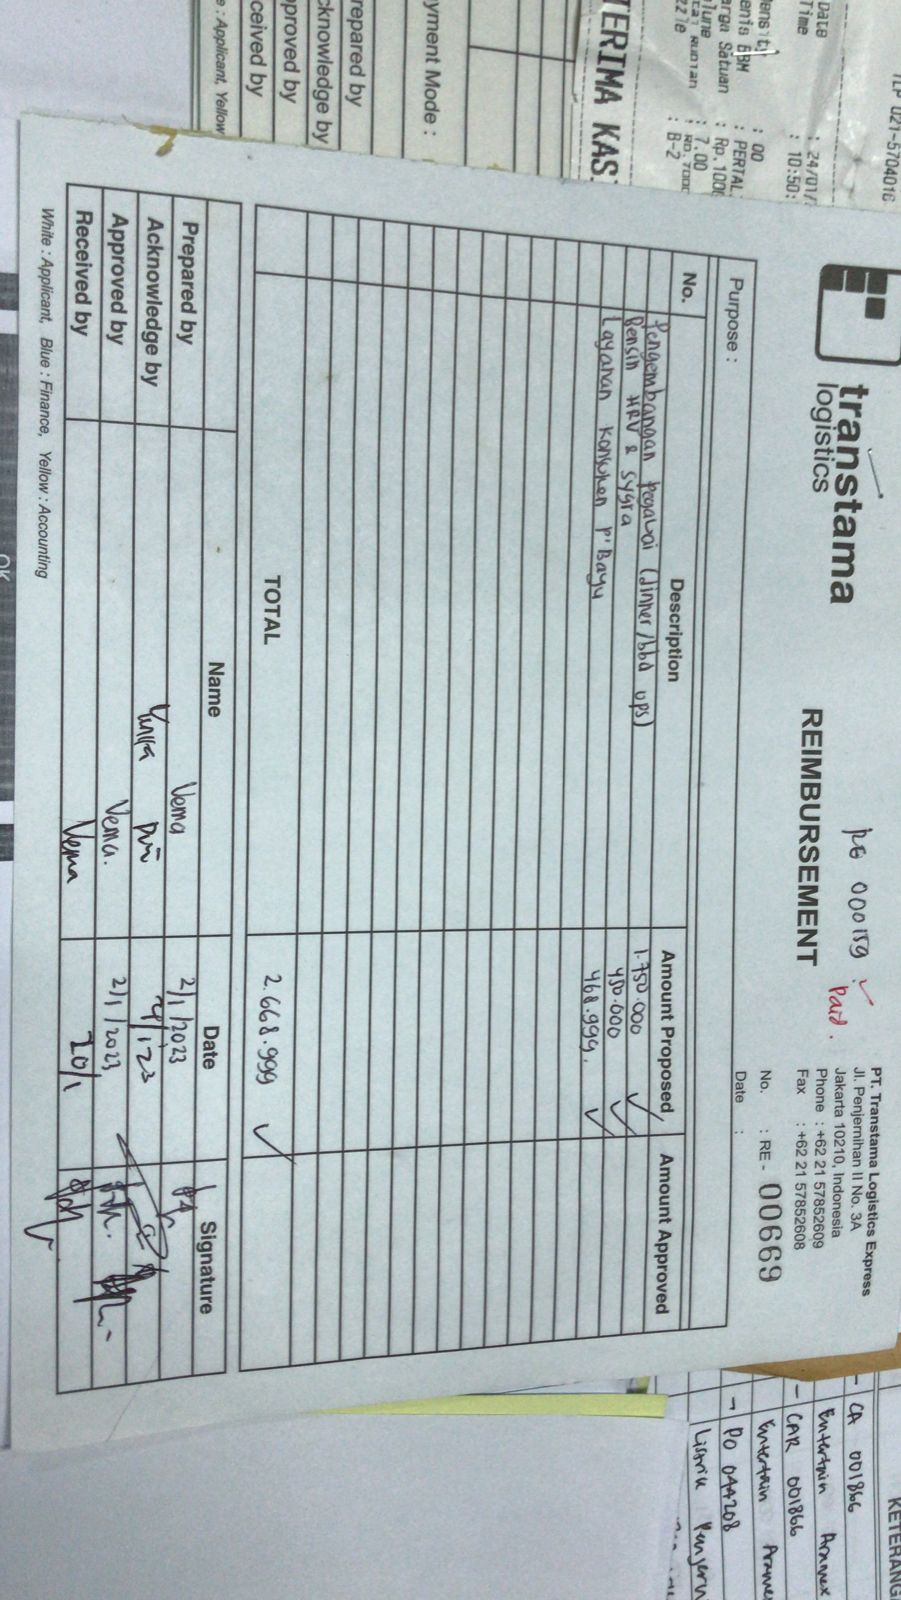 transtama
logistics
REIMBURSEMENT
RE 000159
Paid.
PT. Transtama Logistics Express
Jl. Penjernihan II No. 3A
Jakarta 10210, Indonesia
Phone : +62 21 57852609
Fax : +62 21 57852608
No. : RE - 00669
Date :
Purpose :
No. Description Amount Proposed Amount Approved
Pengembangan pegawai (dinner/bbd ops) 1.750.000
Bensin HRV & Sygra 450.000
Layanan Konsumen P' Bayu 468.999
TOTAL 2.668.999
Name Date Signature
Prepared by Vema 2/1/2023
Acknowledge by 4/1'23
Approved by Vema. 2/1/2023
Received by Vema 20/1
White : Applicant, Blue : Finance, Yellow : Accounting
TLP 021-5704016
Date : 24/01/
Time : 10:50:
: 00
enis BBM : PERTAL
arga Satuan : Rp.1000
: 7.00
: B-2
TERIMA KAS
yment Mode :
repared by
cknowledge by
pproved by
ceived by
e : Applicant, Yellow
KETERANG
- CA 001866
Entertain Aramex
- CAR 001866
Entertain Arame
- PO 044208
Listrik Penjern
OK